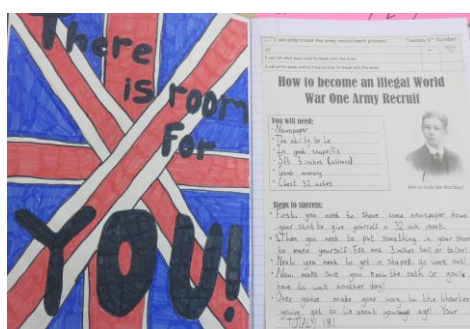 There
is room
For
YOU!
Tuesday 6th October
I can understand the army recruitment process
How to become an illegal World
War One Army Recruit
You will need:
• Newspaper
• The ability to lie
• In good shape/fit
• 5ft 3 inches (allowed)
• Good memory
• Chest 32 inches
Aim to look like this boy!
Steps to success:
• Firstly you need to shove some newspaper down
your shirt to give yourself a 32 inch chest.
• Then you need to put something in your shoes
to make yourself 5ft and 3 inches tall or taller.
• Next you need to get in shape. So go work out!
• Now, make sure you know the oath or you'll
have to wait another day!
• Once you've made your way to the
you've got to lie about your age! Your
TOTALLY 18!